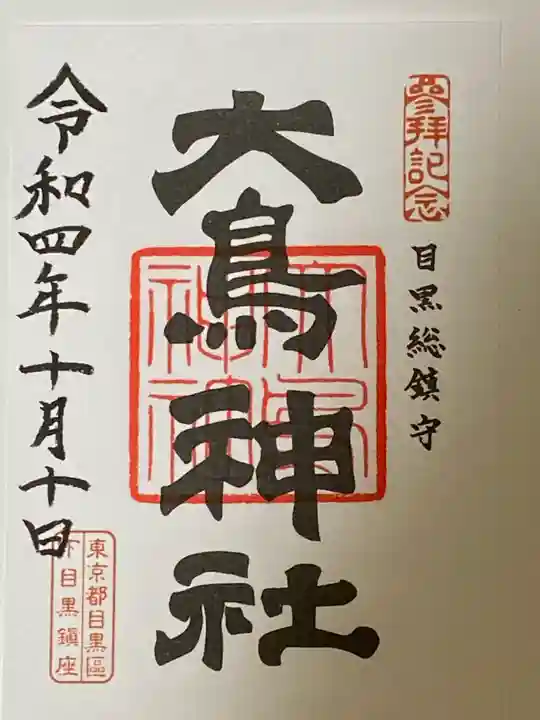 參拜記念
目黒総鎮守
大鳥神社
大鳥神社
令和四年十月十日
東京都目黒區
下目黒鎭座